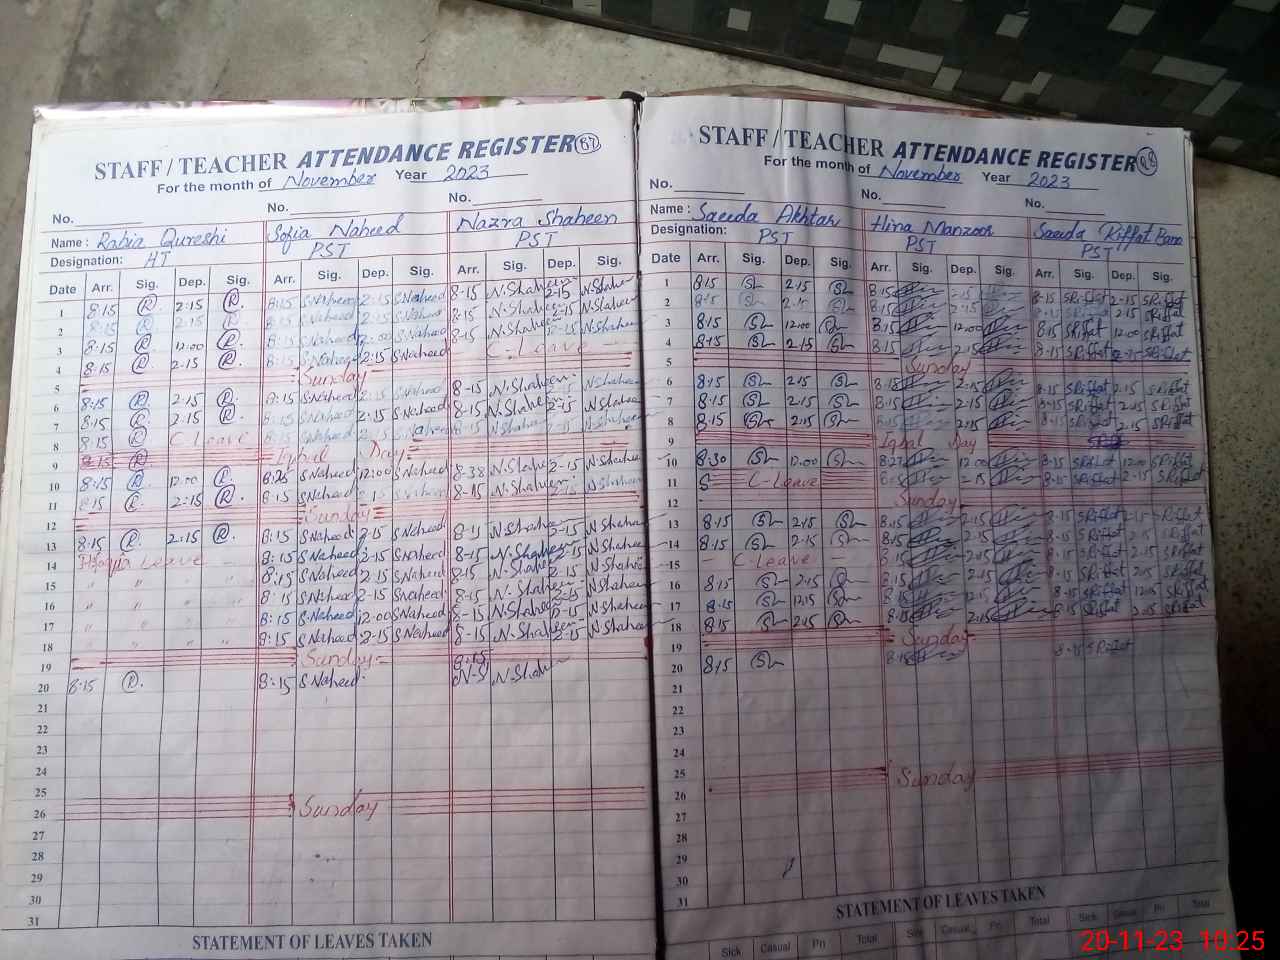 STAFF / TEACHER ATTENDANCE REGISTER 87
For the month of November Year 2023
No. No. No.
Name : Rabia Qureshi Sofia Naheed Nazra Shaheen
Designation: HT PST PST
Date Arr. Sig. Dep. Sig. Arr. Sig. Dep. Sig. Arr. Sig. Dep. Sig.
1 8:15 R. 2:15 R. 8:15 S.Naheed 2:15 S.Naheed 8-15 N.Shaheen 2-15 N.Shaheen
2 8:15 R 2:15 R 8:15 S.Naheed 2:15 S.Naheed 8-15 N.Shaheen 2-15 N.Shaheen
3 8:15 R. 12:00 R. 8:15 S.Naheed 12:00 S.Naheed 8-15 N.Shaheen N.Shaheen
4 8:15 R. 2:15 R. 8:15 S.Naheed 2:15 S.Naheed C-Leave
5 Sunday
6 8:15 R 2:15 R. 8:15 S.Naheed 2:15 S.Naheed 8-15 N.Shaheen 2-15 N.Shaheen
7 8:15 R 2:15 R. 8:15 S.Naheed 2:15 S.Naheed 8-15 N.Shaheen 2-15 N.Shaheen
8 8:15 R C Leave 8:15 S.Naheed 2:15 S.Naheed 8-15 N.Shaheen 2-15 N.Shaheen
9 8:15 R Iqbal Day
10 8:15 R 12:00 R. 8:25 S Naheed 12:00 S Naheed 8-38 N.Shaheen 2-15 N.Shaheen
11 8:15 R. 2:15 R. 8:15 S Naheed S Naheed 8-15 N.Shaheen 2-15 N.Shaheen
12 Sunday
13 8:15 R. 2:15 R. 8:15 S Naheed 2:15 S.Naheed 8-15 N.Shaheen 2-15 N.Shaheen
14 Leave 8:15 S Naheed 2-15 S.Naheed 8-15 N.Shaheen 2-15 N.Shaheen
15 " " " 8:15 S Naheed 2-15 S.Naheed 8-15 N.Shaheen 2-15 N.Shaheen
16 " " " 8:15 S Naheed 2-15 S.Naheed 8-15 N.Shaheen 2-15 N.Shaheen
17 " " " 8:15 S.Naheed 12:00 S Naheed 8-15 N.Shaheen N.Shaheen
18 " " " 8:15 S Naheed 2-15 S Naheed 8-15 N.Shaheen 2-15 N.Shaheen
19 Sunday 8:15
20 8:15 R. 8:15 S Naheed N-S N.Shaheen
21
22
23
24
25
26 Sunday
27
28
29
30
31
STATEMENT OF LEAVES TAKEN
STAFF / TEACHER ATTENDANCE REGISTER 88
For the month of November Year 2023
No. No. No.
Name : Saeeda Akhtar Hina Manzoor Saeeda Riffat Bano
Designation: PST PST PST
Date Arr. Sig. Dep. Sig. Arr. Sig. Dep. Sig. Arr. Sig. Dep. Sig.
1 8:15 2:15 8:15 2:15 8-15 SRiffat 2-15 SRiffat
2 8:15 2:15 8:15 2:15 8-15 SRiffat 2:15 SRiffat
3 8:15 12:00 8:15 12:00 8:15 SRiffat 12:00 SRiffat
4 8:15 2:15 8:15 2:15 8-15 SRiffat 2-15 SRiffat
5 Sunday
6 8:15 2:15 8:15 2:15 8-15 SRiffat 2-15 SRiffat
7 8:15 2:15 8:15 2:15 8-15 SRiffat 2:15 SRiffat
8 8:15 2:15 8:15 2:15 8-15 SRiffat 2-15 SRiffat
9 Iqbal Day SRiffat
10 8:30 12:00 8:27 12:00 8-15 SRiffat 12:00 SRiffat
11 C-Leave 8:15 8-15 SRiffat 2-15 SRiffat
12 Sunday
13 8:15 2:15 8:15 2:15 8-15 SRiffat 2-15 Riffat
14 8:15 2:15 8:15 2:15 8-15 SRiffat 2-15 SRiffat
15 C-Leave 8:15 2:15 8-15 SRiffat 2-15 SRiffat
16 8:15 2:15 8:15 2:15 8-15 SRiffat 2-15 SRiffat
17 8:15 12:15 8:15 12:15 8-15 SRiffat 12:15 SRiffat
18 8:15 2:15 8:15 2:15 8-15 SRiffat 2:15 SRiffat
19 Sunday
20 8:15 8:15 8-15 SRiffat
21
22
23
24
25
26 Sunday
27
28
29
30
31
STATEMENT OF LEAVES TAKEN
Sick Casual Pri Total Sick Casual Pri Total Sick Casual Pri Total
20-11-23 10:25